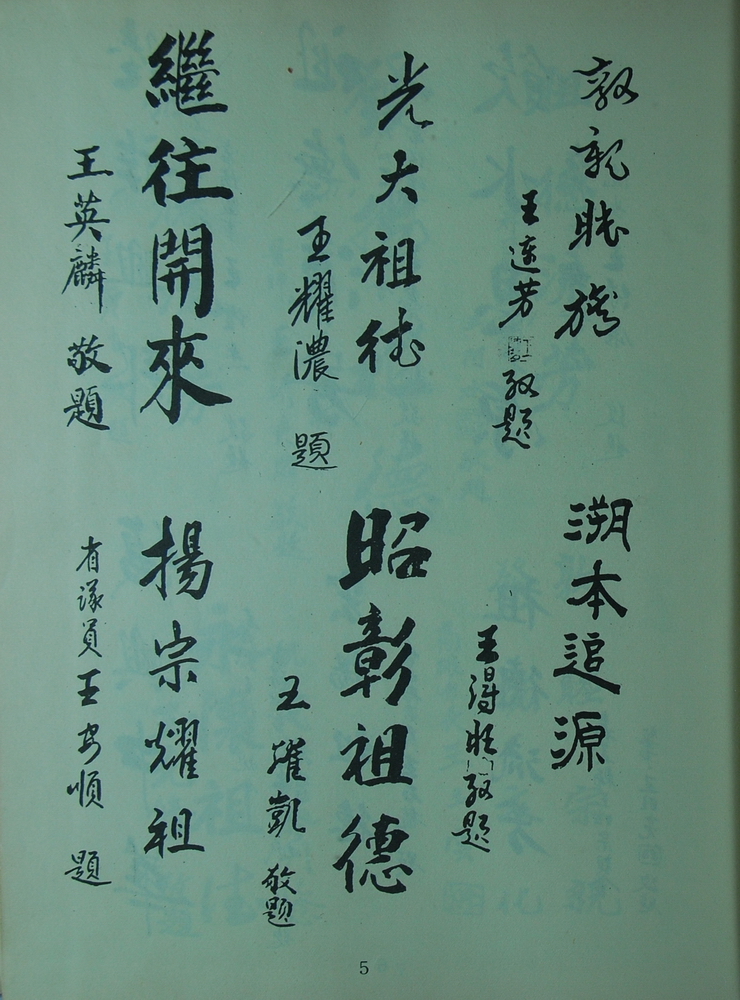 敦親睦族
王達芳 敬題
光大祖德
王耀濃 題
繼往開來
王英麟 敬題
溯本追源
王得旺 敬題
昭彰祖德
王耀凱 敬題
揚宗耀祖
省議員王安順 題
5